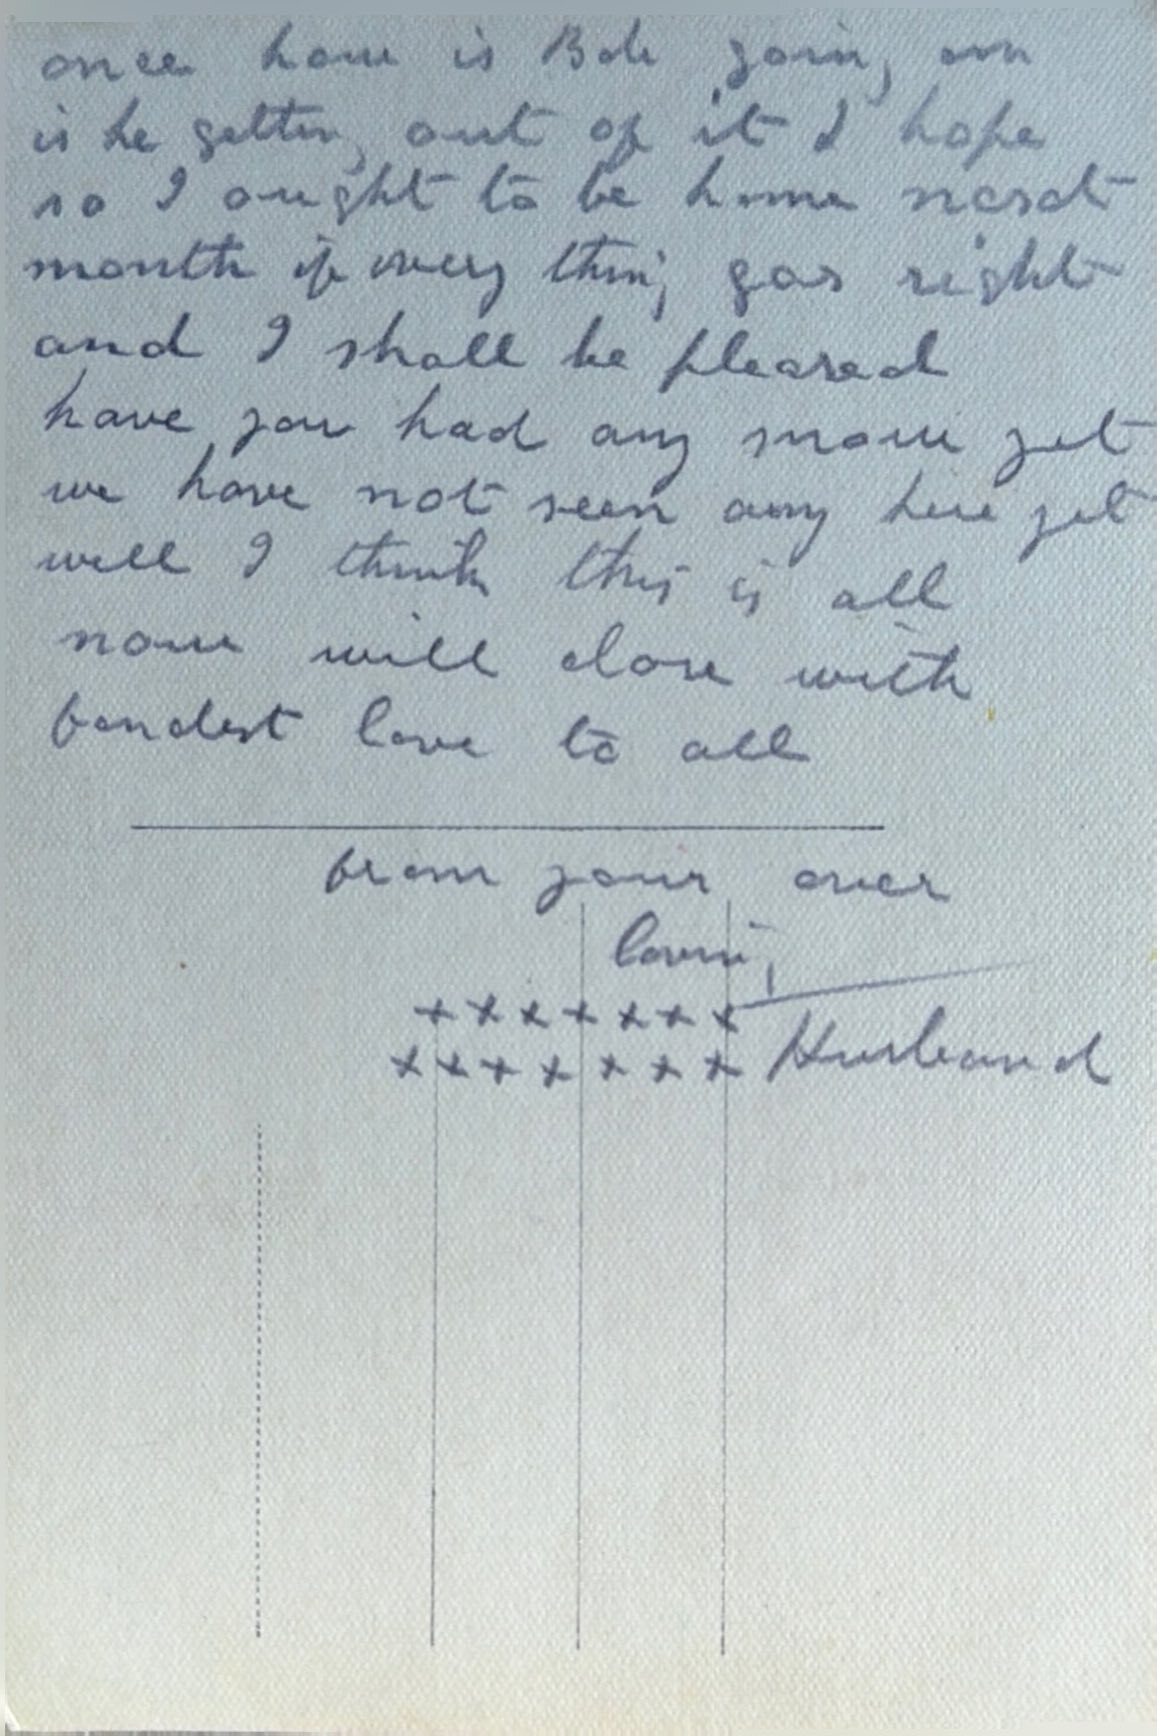 once how is Bob going on
is he getting out of it I hope
so I ought to be home next
month if every thing goes right
and I shall be pleased
have you had any snow yet
we have not seen any here yet
well I think this is all
now will close with
fondest love to all
from your ever
loving
x x x x x x x
x x x x x x x Husband